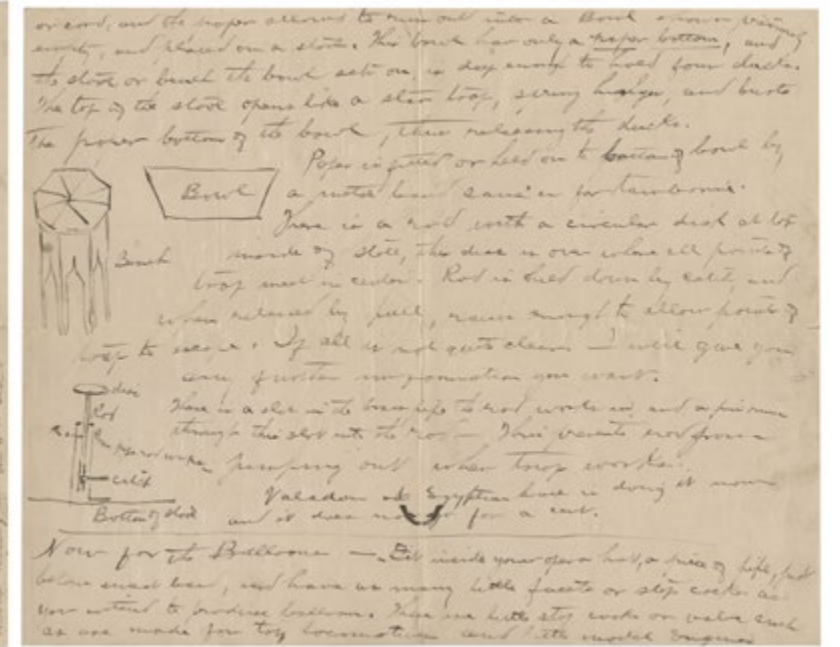 or cord, and the paper allowed to run out into a Bowl shown
empty, and placed on a stool. This bowl has only a paper bottom, and
the stool or bench the bowl sets on, is deep enough to hold four ducks.
The top of the stool opens like a star trap, spring hinges, and bursts
the paper bottom of the bowl, thus releasing the ducks.
Paper is fitted or held on to bottom of bowl by
Bowl
a metal band same as for tambourine.
There is a rod with a circular disk at top
Bench
inside of stool, this disc is over where all points of
trap meet in center. Rod is held down by catch, and
when released by pull, raises enough to allow points of
trap to escape. If all is not quite clear I will give you
any further information you want.
disc
Rod
There is a slot in the brass pipe the rod works in, and a pin runs
through this slot into the rod — This prevents rod from
catch
jumping out when trap works.
Valadon at Egyptian hall is doing it now
Bottom of stool
and it does not go for a cent.
Now for the Balloons — inside your opera hat, a piece of pipe, just
below sweat band, and have as many little faucets or stop cocks as
you intend to produce balloons. These are little stop cocks or valve such
as are made for toy locomotives and little model Engines